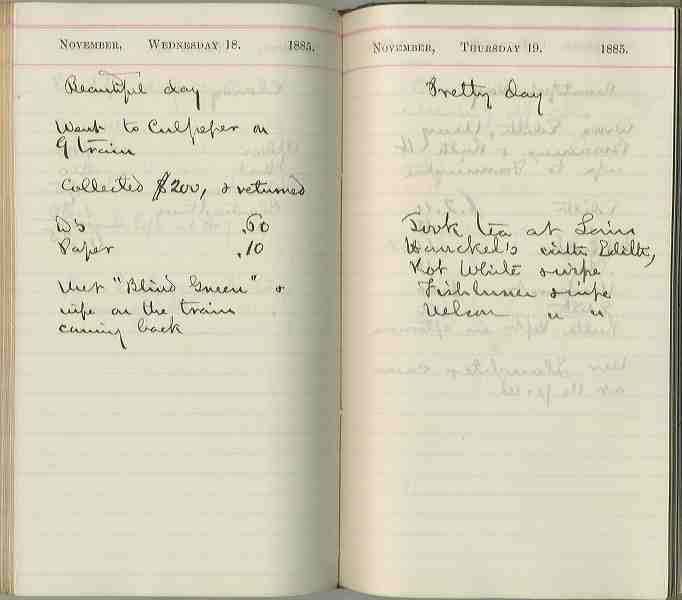 NOVEMBER, WEDNESDAY 18. 1885.
Beautiful day
Went to Culpeper on
9 train
Collected $200, & returned
Ds .60
Paper .10
Met "Blind Green" &
wife on the train
coming back
NOVEMBER, THURSDAY 19. 1885.
Pretty day
Took tea at
Hanckel's with Edith,
Kot White & wife
Fishburne & wife
Nelson " "